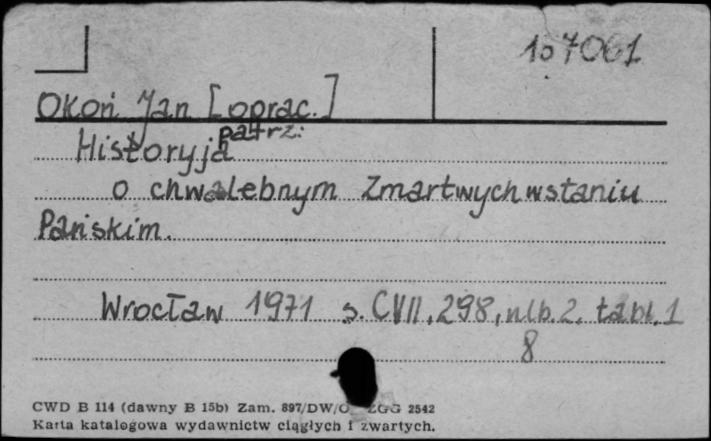 107061
Okoń Jan [oprac.]
patrz:
Historyja
o chwalebnym Zmartwychwstaniu
Pańskim.
Wrocław 1971 s. CVII, 298, nlb. 2. tabl. 1
8
CWD B 114 (dawny B 15b) Zam. 897/DW/O ZGG 2542
Karta katalogowa wydawnictw ciągłych i zwartych.